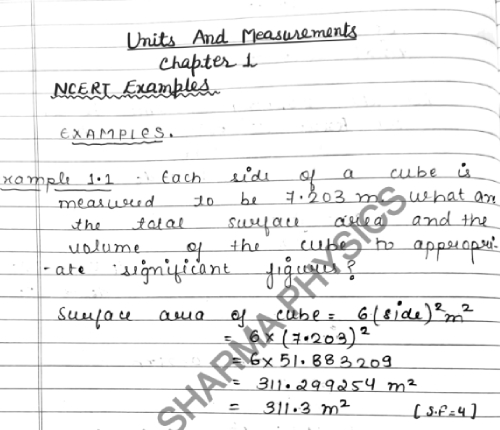 Units And Measurements
Chapter 1
NCERT Examples
EXAMPLES.
xample 1.1 : Each side of a cube is
measured to be 7.203 m. what are
the total surface area and the
volume of the cube to appropri-
-ate significant figures?
Surface area of cube = 6(side)² m²
= 6x (7.203)²
= 6x 51.883209
= 311.299254 m²
= 311.3 m² [S.F=4]
SHARMA PHYSICS